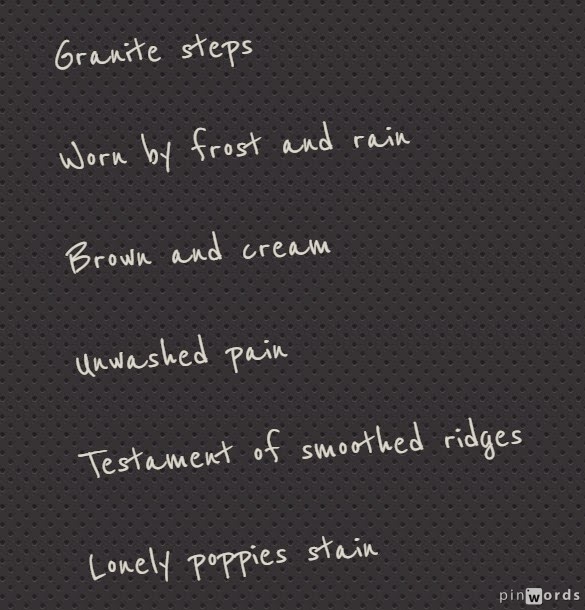 Granite steps
Worn by frost and rain
Brown and cream
Unwashed pain
Testament of smoothed ridges
Lonely poppies stain
pinwords